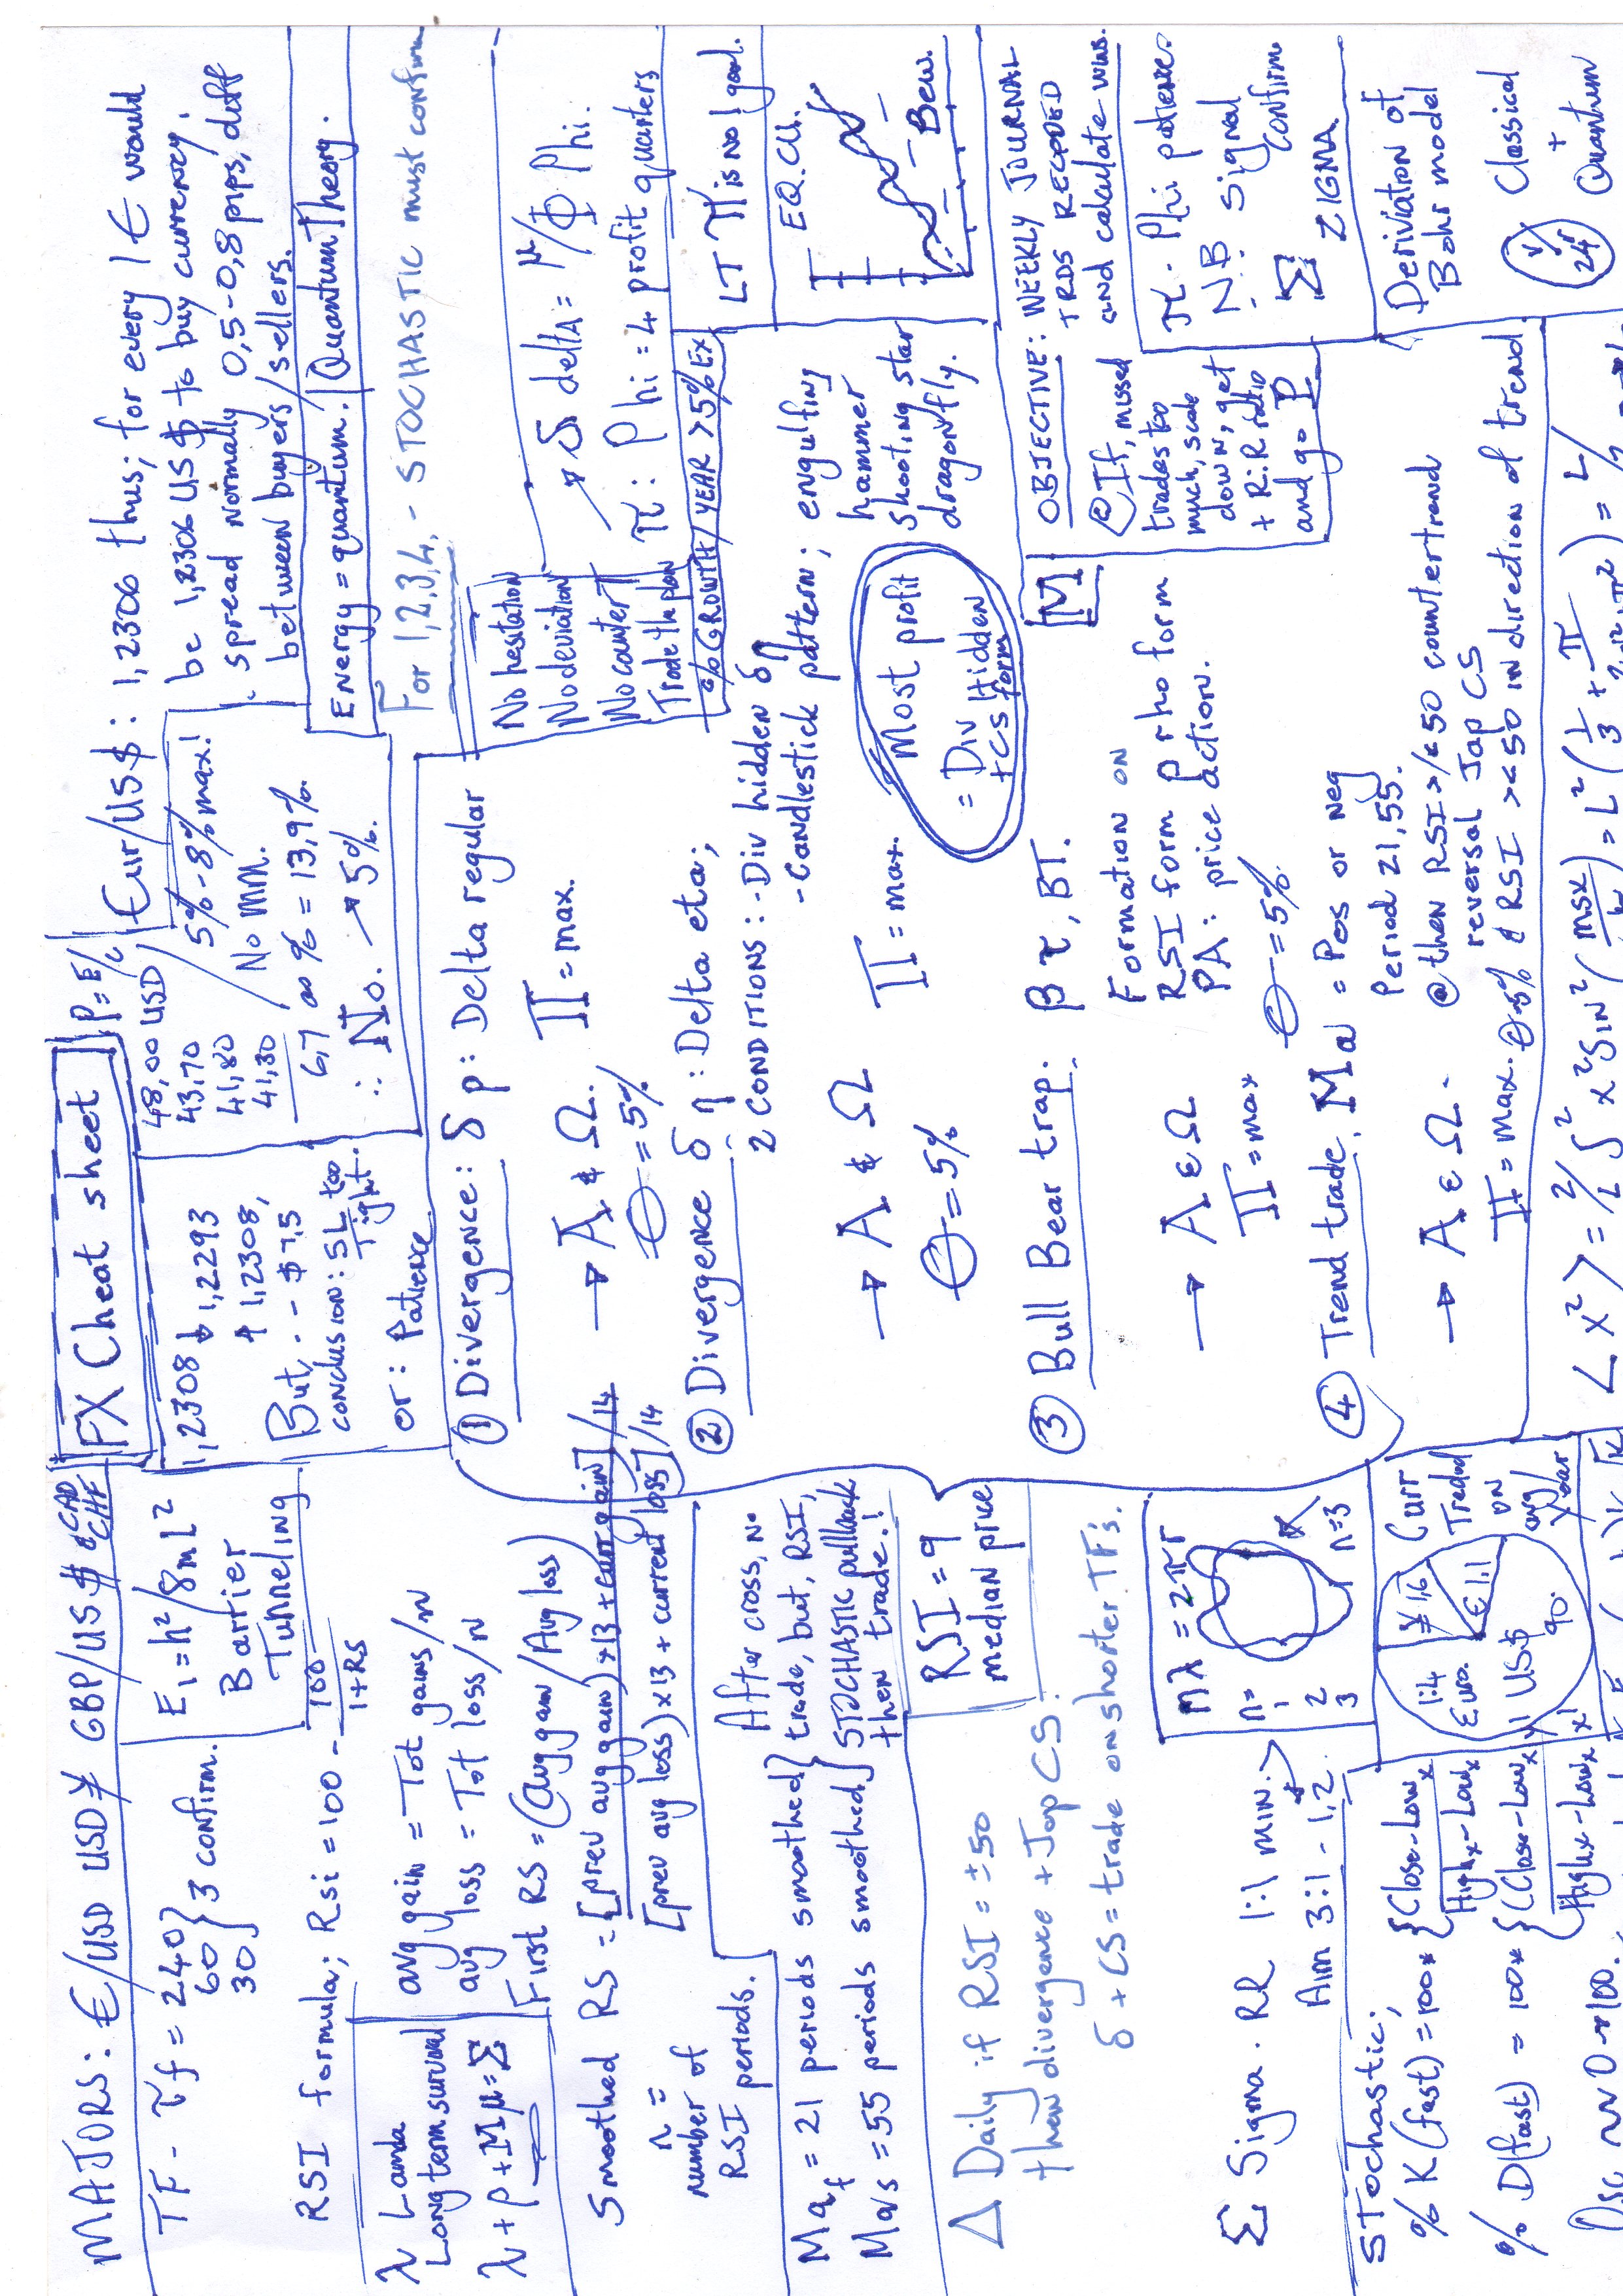 MAJORS: €/USD USD¥ GBP/US$ & CAD & CHF
TF - τf = 240
60 } 3 confirm.
30
E₁ = h²/8mL²
Barrier
Tunneling
RSI formula; Rsi = 100 - 100/1+RS
λ Lamda
Long term survival
λ + ρ + M μ = Σ
avg gain = Tot gains/n
avg loss = Tot loss/n
First RS = (Avg gain/Avg loss)
Smoothed RS = [prev avg gain) x 13 + curr gain]/14
[prev avg loss) x 13 + current loss]/14
n =
number of
RSI periods.
After cross, no
trade, but, RSI,
STOCHASTIC pullback
then trade.!
Maf = 21 periods smoothed
Ma/s = 55 periods smoothed
RSI = 9
median price
Δ Daily if RSI = ±50
then divergence + Jap CS.
δ + CS = trade on shorter TF's.
Σ Sigma. RR 1:1 min.
Aim 3:1 - 1,2
nλ = 2πr
n=
1
2
3
n=3
STochastic;
% K (fast) = 100 * {Close - Lowx
Highx - Lowx
% D (fast) = 100 * {(Close - Lowx)
(Highx - Lowx)
1:4
Euro.
¥ 1,6
€ 1,1
1 US$
90.
Curr
Traded
on
avg/
Year
FX Cheat sheet
P = E/c
1,2308 ↓ 1,2293
↑ 1,2308,
But, - - $ 7,5
conclusion: SL too
Tight.
or: Patience
48,00 USD
43,70
41,80
41,30
6,7 as % = 13,9%.
∴ No. → 5%.
5% - 8% max!
No MM.
Eur/US$: 1,2306 thus; for every 1 € would
be 1,2306 US$ to buy currency.
spread normally 0,5 - 0,8 pips, diff
between buyers/sellers.
Energy = quantum. Quantum Theory.
For 1,2,3,4, - STOCHASTIC must confirm
① Divergence: δ ρ: Delta regular
→ A & Ω. Π = max.
Θ = 5%
No hesitation
No deviation
No counter T
Trade the plan
→ δ delta = μ/Φ Phi.
π: Phi = 4 profit quarters
% GROWTH / YEAR > 5% Ex
LT π is no 1 goal.
② Divergence δ η: Delta eta;
2 CONDITIONS: - Div hidden δη
- Candlestick pattern; engulfing
hammer
shooting star
dragonfly.
→ A & Ω Π = max.
Θ = 5%
Most profit
= Div Hidden
+ CS form
EQ.CU.
Bew.
③ Bull Bear trap. β τ, BT.
→ A & Ω
Π = max
Formation on
RSI form ρ rho form
PA: price action.
Θ = 5%
M
OBJECTIVE: WEEKLY JOURNAL
TRDS RECORDED
and calculate wins.
@ If, missed
trades too
much, scale
down, get
+ R:R Ratio
and go P
π. Phi patience.
N.B. Signal
confirm
Σ ZIGMA
④ Trend trade. Ma = Pos or neg
Period 21,55.
→ A & Ω. @ then RSI >/< 50 countertrend
reversal Jap CS
Π = max. Θ 5% & RSI >< 50 in direction of trend.
Derivation of
Bohr model
Classical
+
Quantum